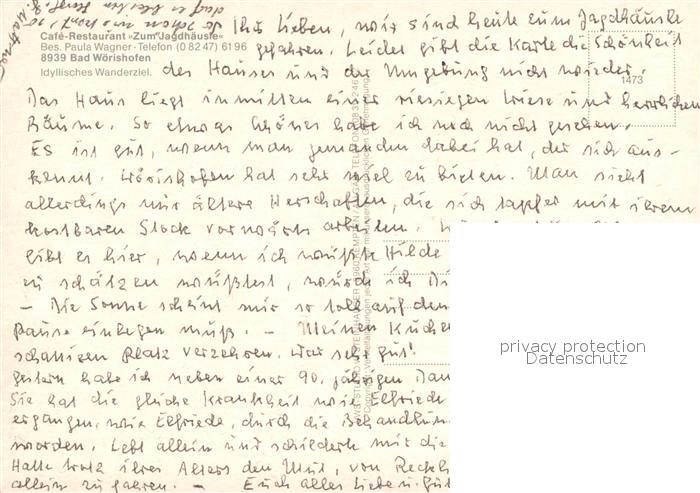 Ihr Lieben, wir sind heute zum Jagdhäusle
gefahren. Leider gibt die Karte die Schönheit
des Hauses und der Umgebung nicht wieder.
Café-Restaurant »Zum Jagdhäusle«
Bes. Paula Wagner · Telefon (0 82 47) 61 96
8939 Bad Wörishofen
Idyllisches Wanderziel.
1473
Das Haus liegt inmitten einer riesigen Wiese und herrlichen
Bäume. So etwas Schönes habe ich noch nicht gesehen.
Es ist gut, wenn man jemanden dabei hat, der sich aus-
kennt. Wörishofen hat sehr viel zu bieten. Man sieht
allerdings nur ältere Herschaften, die sich tapfer mit ihrem
kostbaren Stock vorwärts arbeiten.
gibt es hier, wenn ich wüßte Hilde
zu schätzen wüßtest, würd ich
– Die Sonne scheint mir so toll auf den
Pause einlegen muß. – Meinen Kuchen
schattigen Platz verzehren. War sehr gut!
gestern habe ich neben einer 90. jährigen Dam
Sie hat die gleiche Krankheit wie Elfriede
ergangen, wie Elfriede, durch die Behandlun
worden. Lebt allein und schilderte mir die
Hatte trotz ihres Alters den Mut, von
allein zu fahren. – Euch alles Liebe u. Gut
privacy protection
Datenschutz